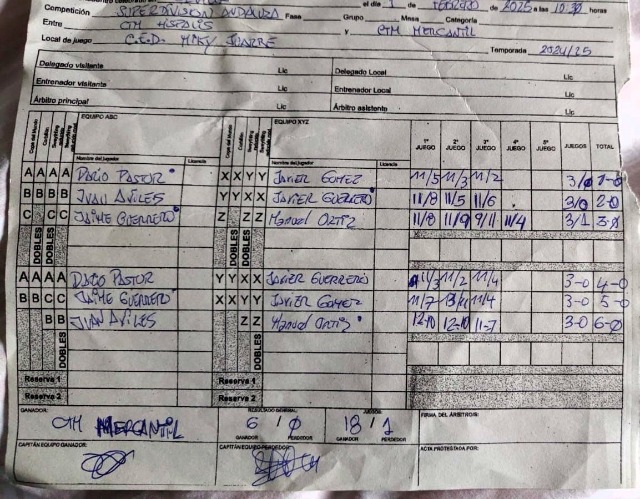 Competición SUPERDIVISIÓN ANDALUZA Fase Grupo Mesa Categoría
el día 1 de FEBRERO de 2025 a las 10:30 horas
Entre CTM HISPALIS y CTM MERCANTIL
Local de juego C.E.D. Temporada 2024/25
Delegado visitante Lic Delegado Local Lic
Entrenador visitante Lic Entrenador Local Lic
Árbitro principal Lic Árbitro asistente Lic
EQUIPO ABC EQUIPO XYZ 1º JUEGO 2º JUEGO 3º JUEGO 4º JUEGO 5º JUEGO JUEGOS TOTAL
Nombre del jugador Licencia Nombre del jugador Licencia
A A A A DARIO PASTOR X X Y Y JAVIER GOMEZ 11/5 11/3 11/2 3/0 1-0
B B B B JUAN AVILES Y Y X X JAVIER GUERRERO 11/8 11/5 11/6 3/0 2-0
C C JAIME GUERRERO Z Z MANUEL ORTIZ 11/8 11/9 9/11 11/4 3/1 3-0
DOBLES DOBLES DOBLES DOBLES
A A A A DARIO PASTOR Y Y X X JAVIER GUERRERO 11/3 11/2 11/4 3-0 4-0
B B C C JAIME GUERRERO X X Y Y JAVIER GOMEZ 11/7 11/4 3-0 5-0
B B JUAN AVILES Z Z MANUEL ORTIZ 12-10 12-10 11-7 3-0 6-0
DOBLES DOBLES
Reserva 1 Reserva 1
Reserva 2 Reserva 2
GANADOR: CTM MERCANTIL RESULTADO GENERAL 6 / 0 JUEGOS 18 / 1 FIRMA DEL ÁRBITRO/S:
GANADOR PERDEDOR GANADOR PERDEDOR
CAPITÁN EQUIPO GANADOR: CAPITÁN EQUIPO PERDEDOR: ACTA PROTESTADA POR: